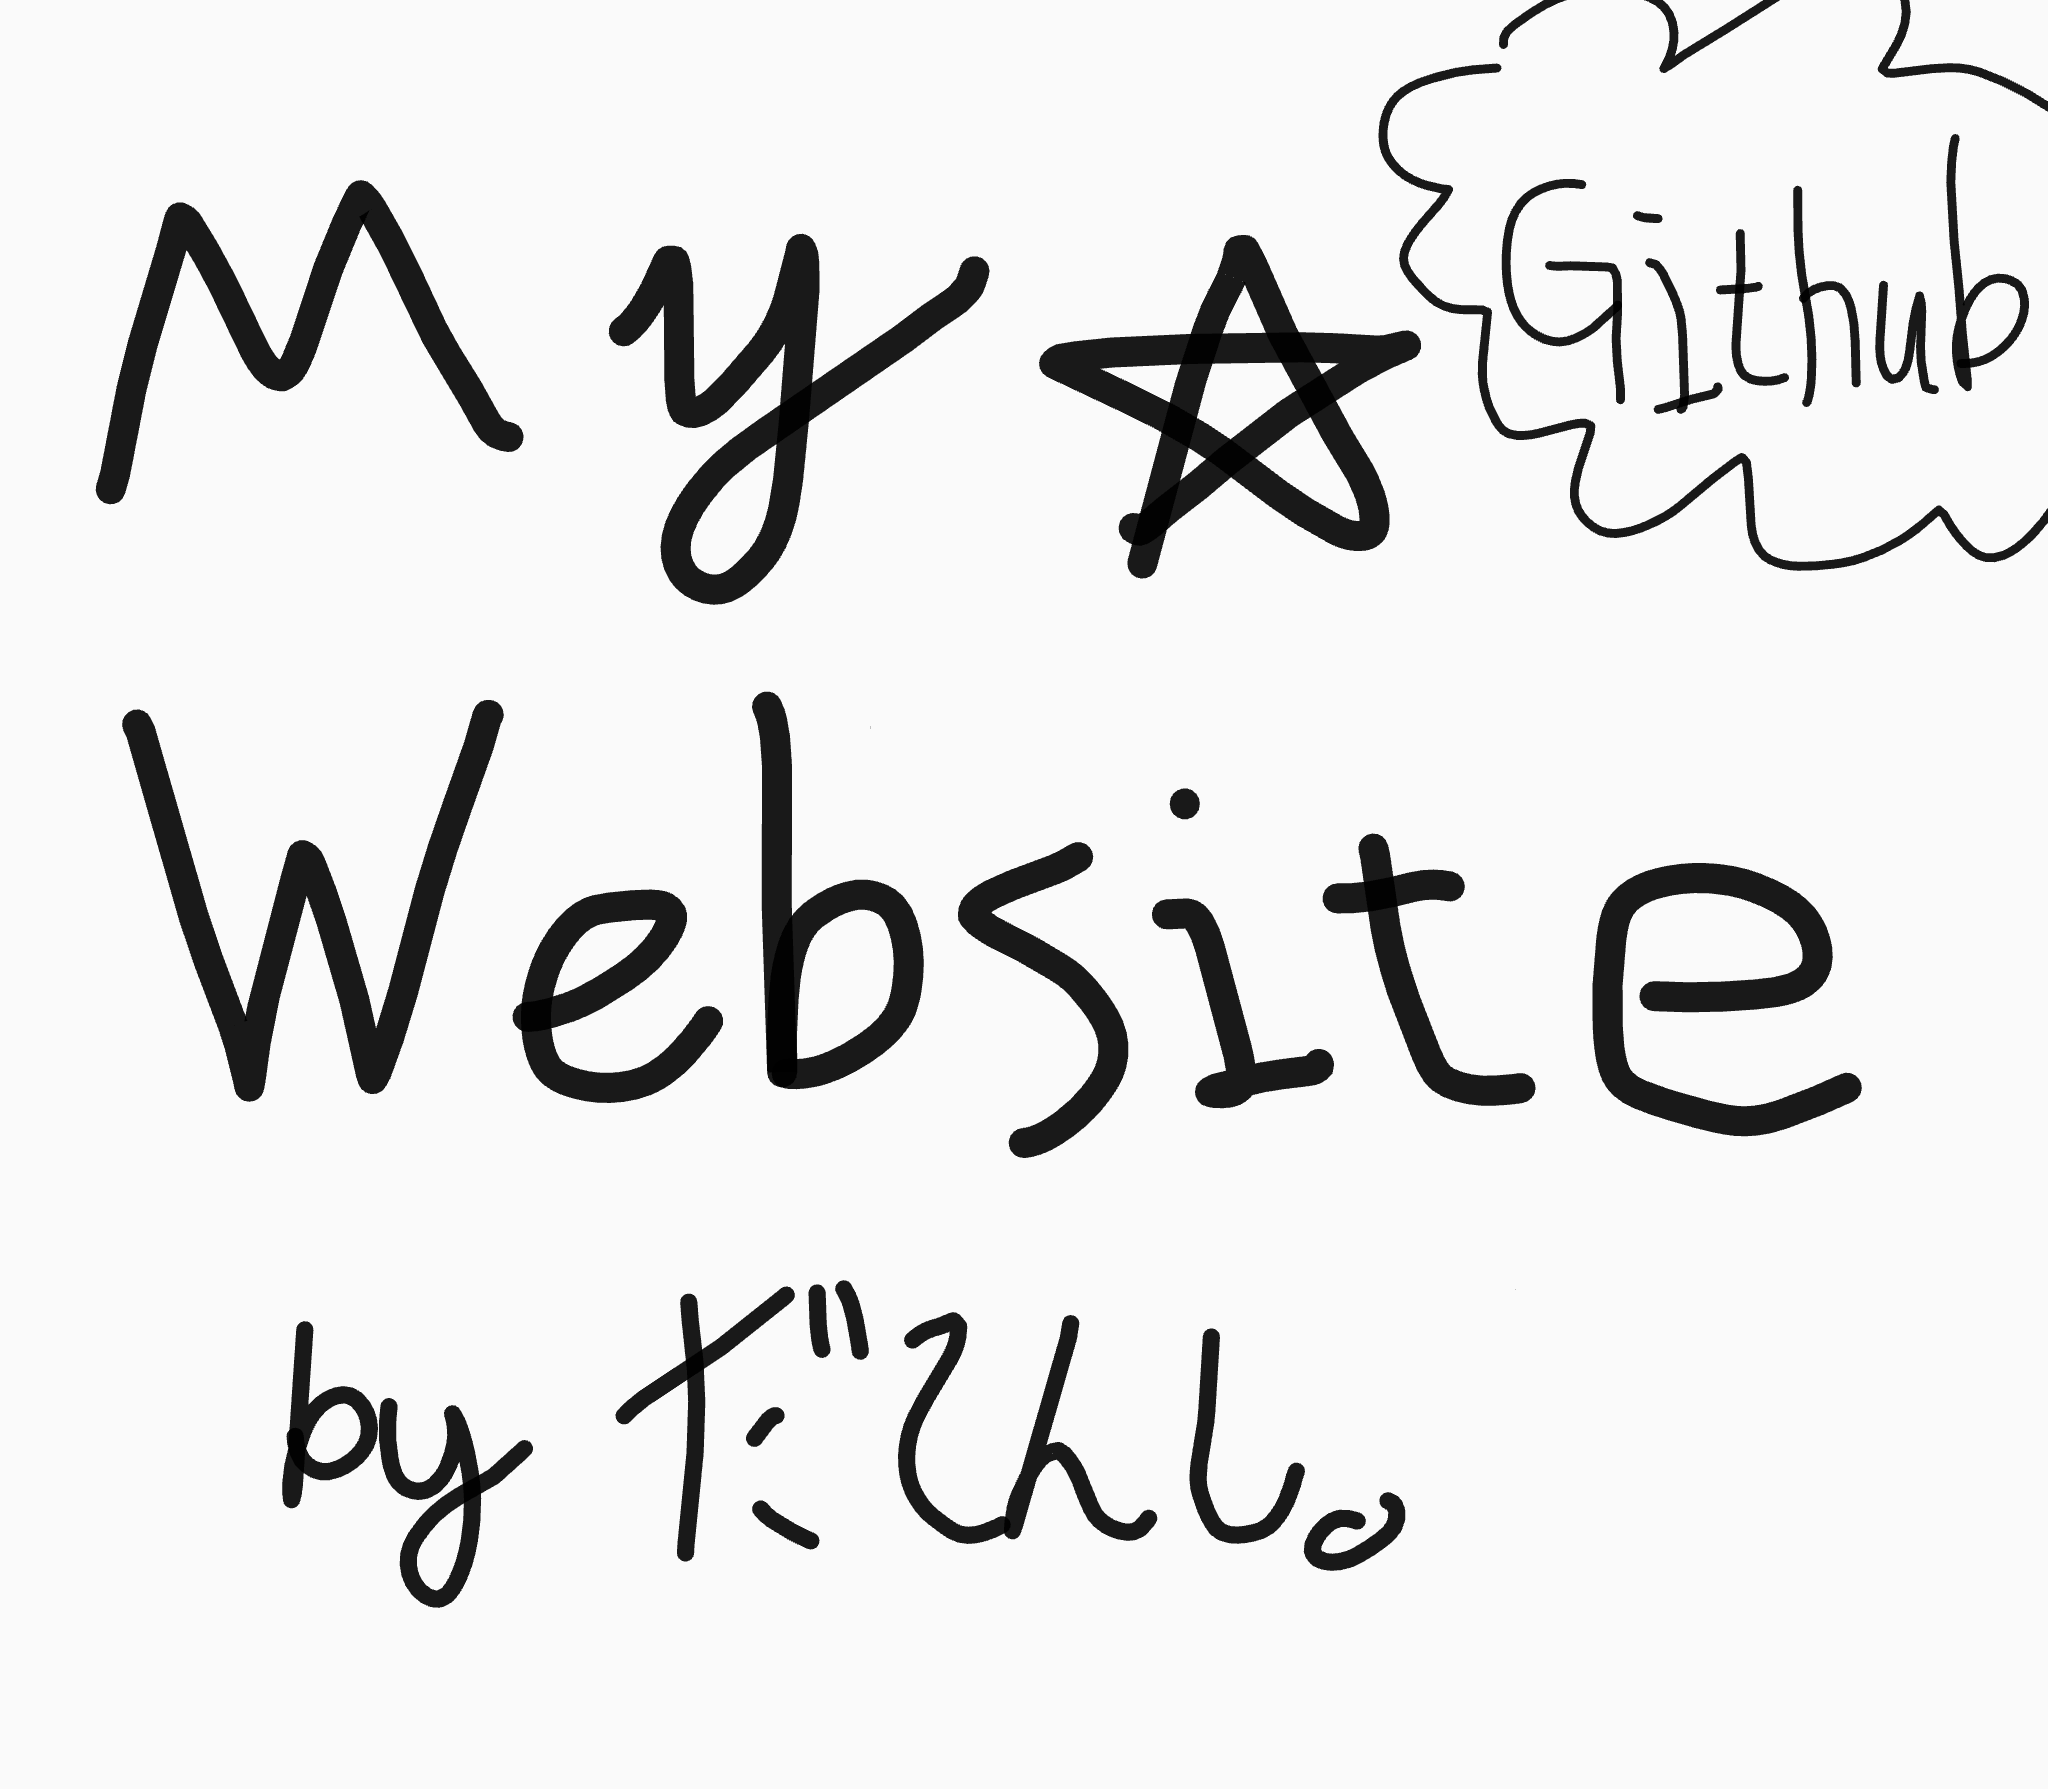 My ☆
Github
Website
by だれん。